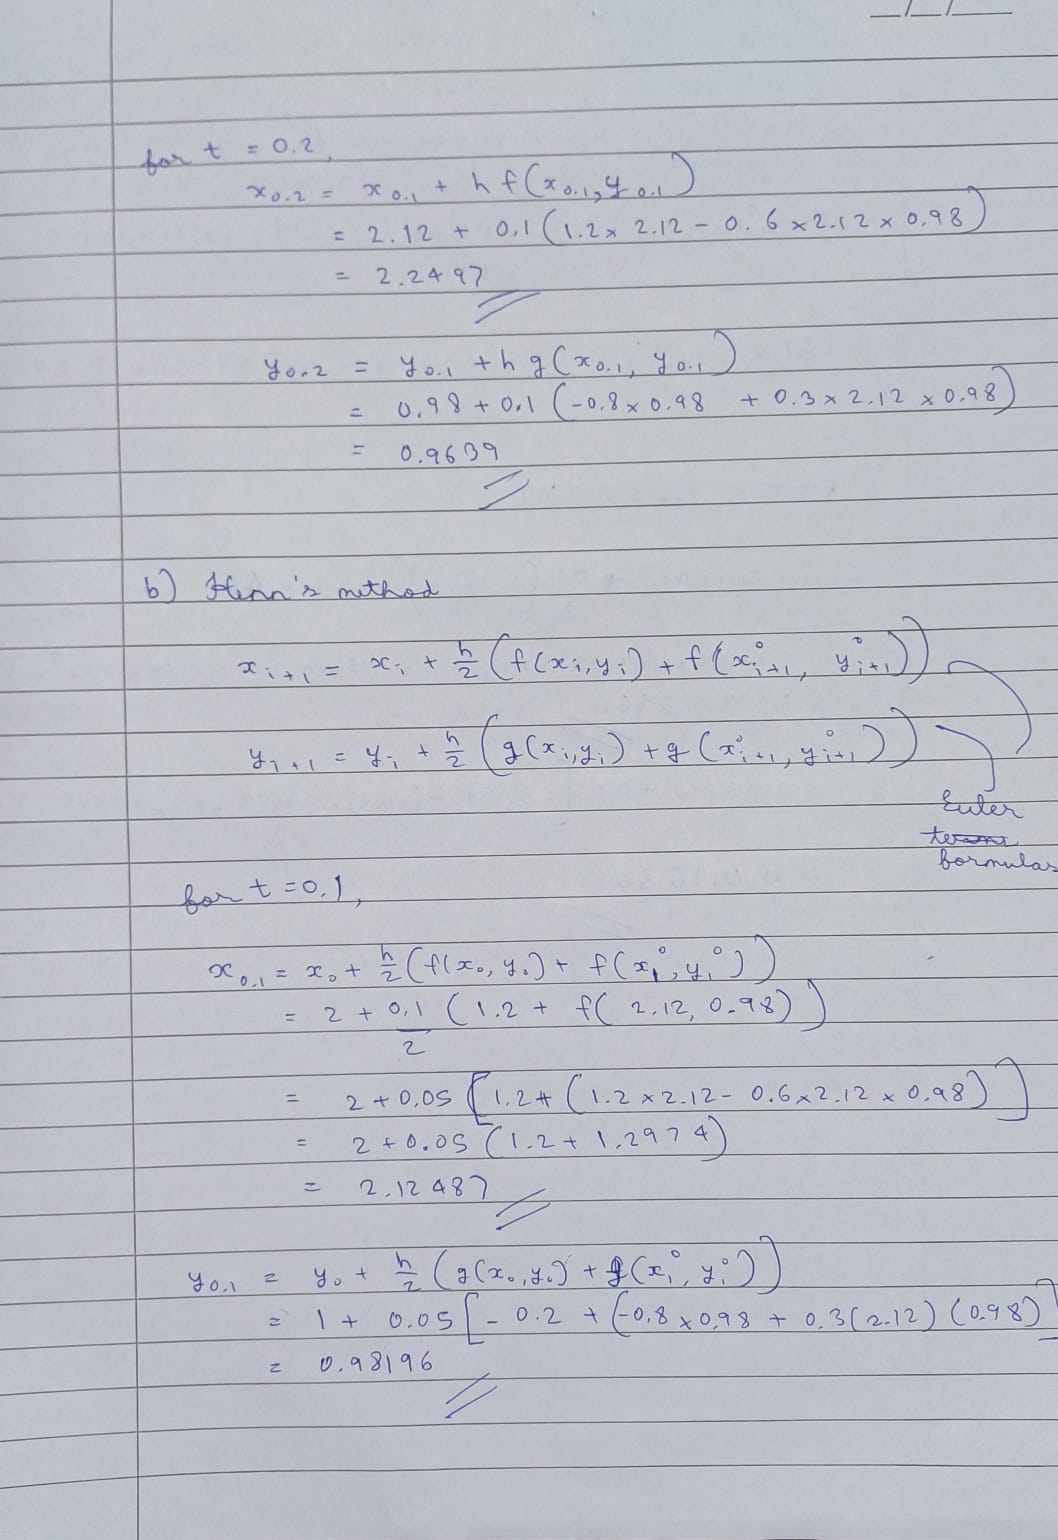 __/__/____
for t = 0.2,
x₀.₂ = x₀.₁ + h f(x₀.₁, y₀.₁)
= 2.12 + 0.1 (1.2 × 2.12 − 0.6 × 2.12 × 0.98)
= 2.2497
y₀.₂ = y₀.₁ + h g(x₀.₁, y₀.₁)
= 0.98 + 0.1 (−0.8 × 0.98 + 0.3 × 2.12 × 0.98)
= 0.9639
b) Heun's method
xᵢ₊₁ = xᵢ + h/2 (f(xᵢ, yᵢ) + f(x⁰ᵢ₊₁, y⁰ᵢ₊₁))
yᵢ₊₁ = yᵢ + h/2 (g(xᵢ, yᵢ) + g(x⁰ᵢ₊₁, y⁰ᵢ₊₁))
Euler
formulas
for t = 0.1,
x₀.₁ = x₀ + h/2 (f(x₀, y₀) + f(x₁⁰, y₁⁰))
= 2 + 0.1/2 (1.2 + f(2.12, 0.98))
= 2 + 0.05 [1.2 + (1.2 × 2.12 − 0.6 × 2.12 × 0.98)]
= 2 + 0.05 (1.2 + 1.2974)
= 2.12487
y₀.₁ = y₀ + h/2 (g(x₀, y₀) + g(x₁⁰, y₁⁰))
= 1 + 0.05 [−0.2 + (−0.8 × 0.98 + 0.3(2.12)(0.98)]
= 0.98196